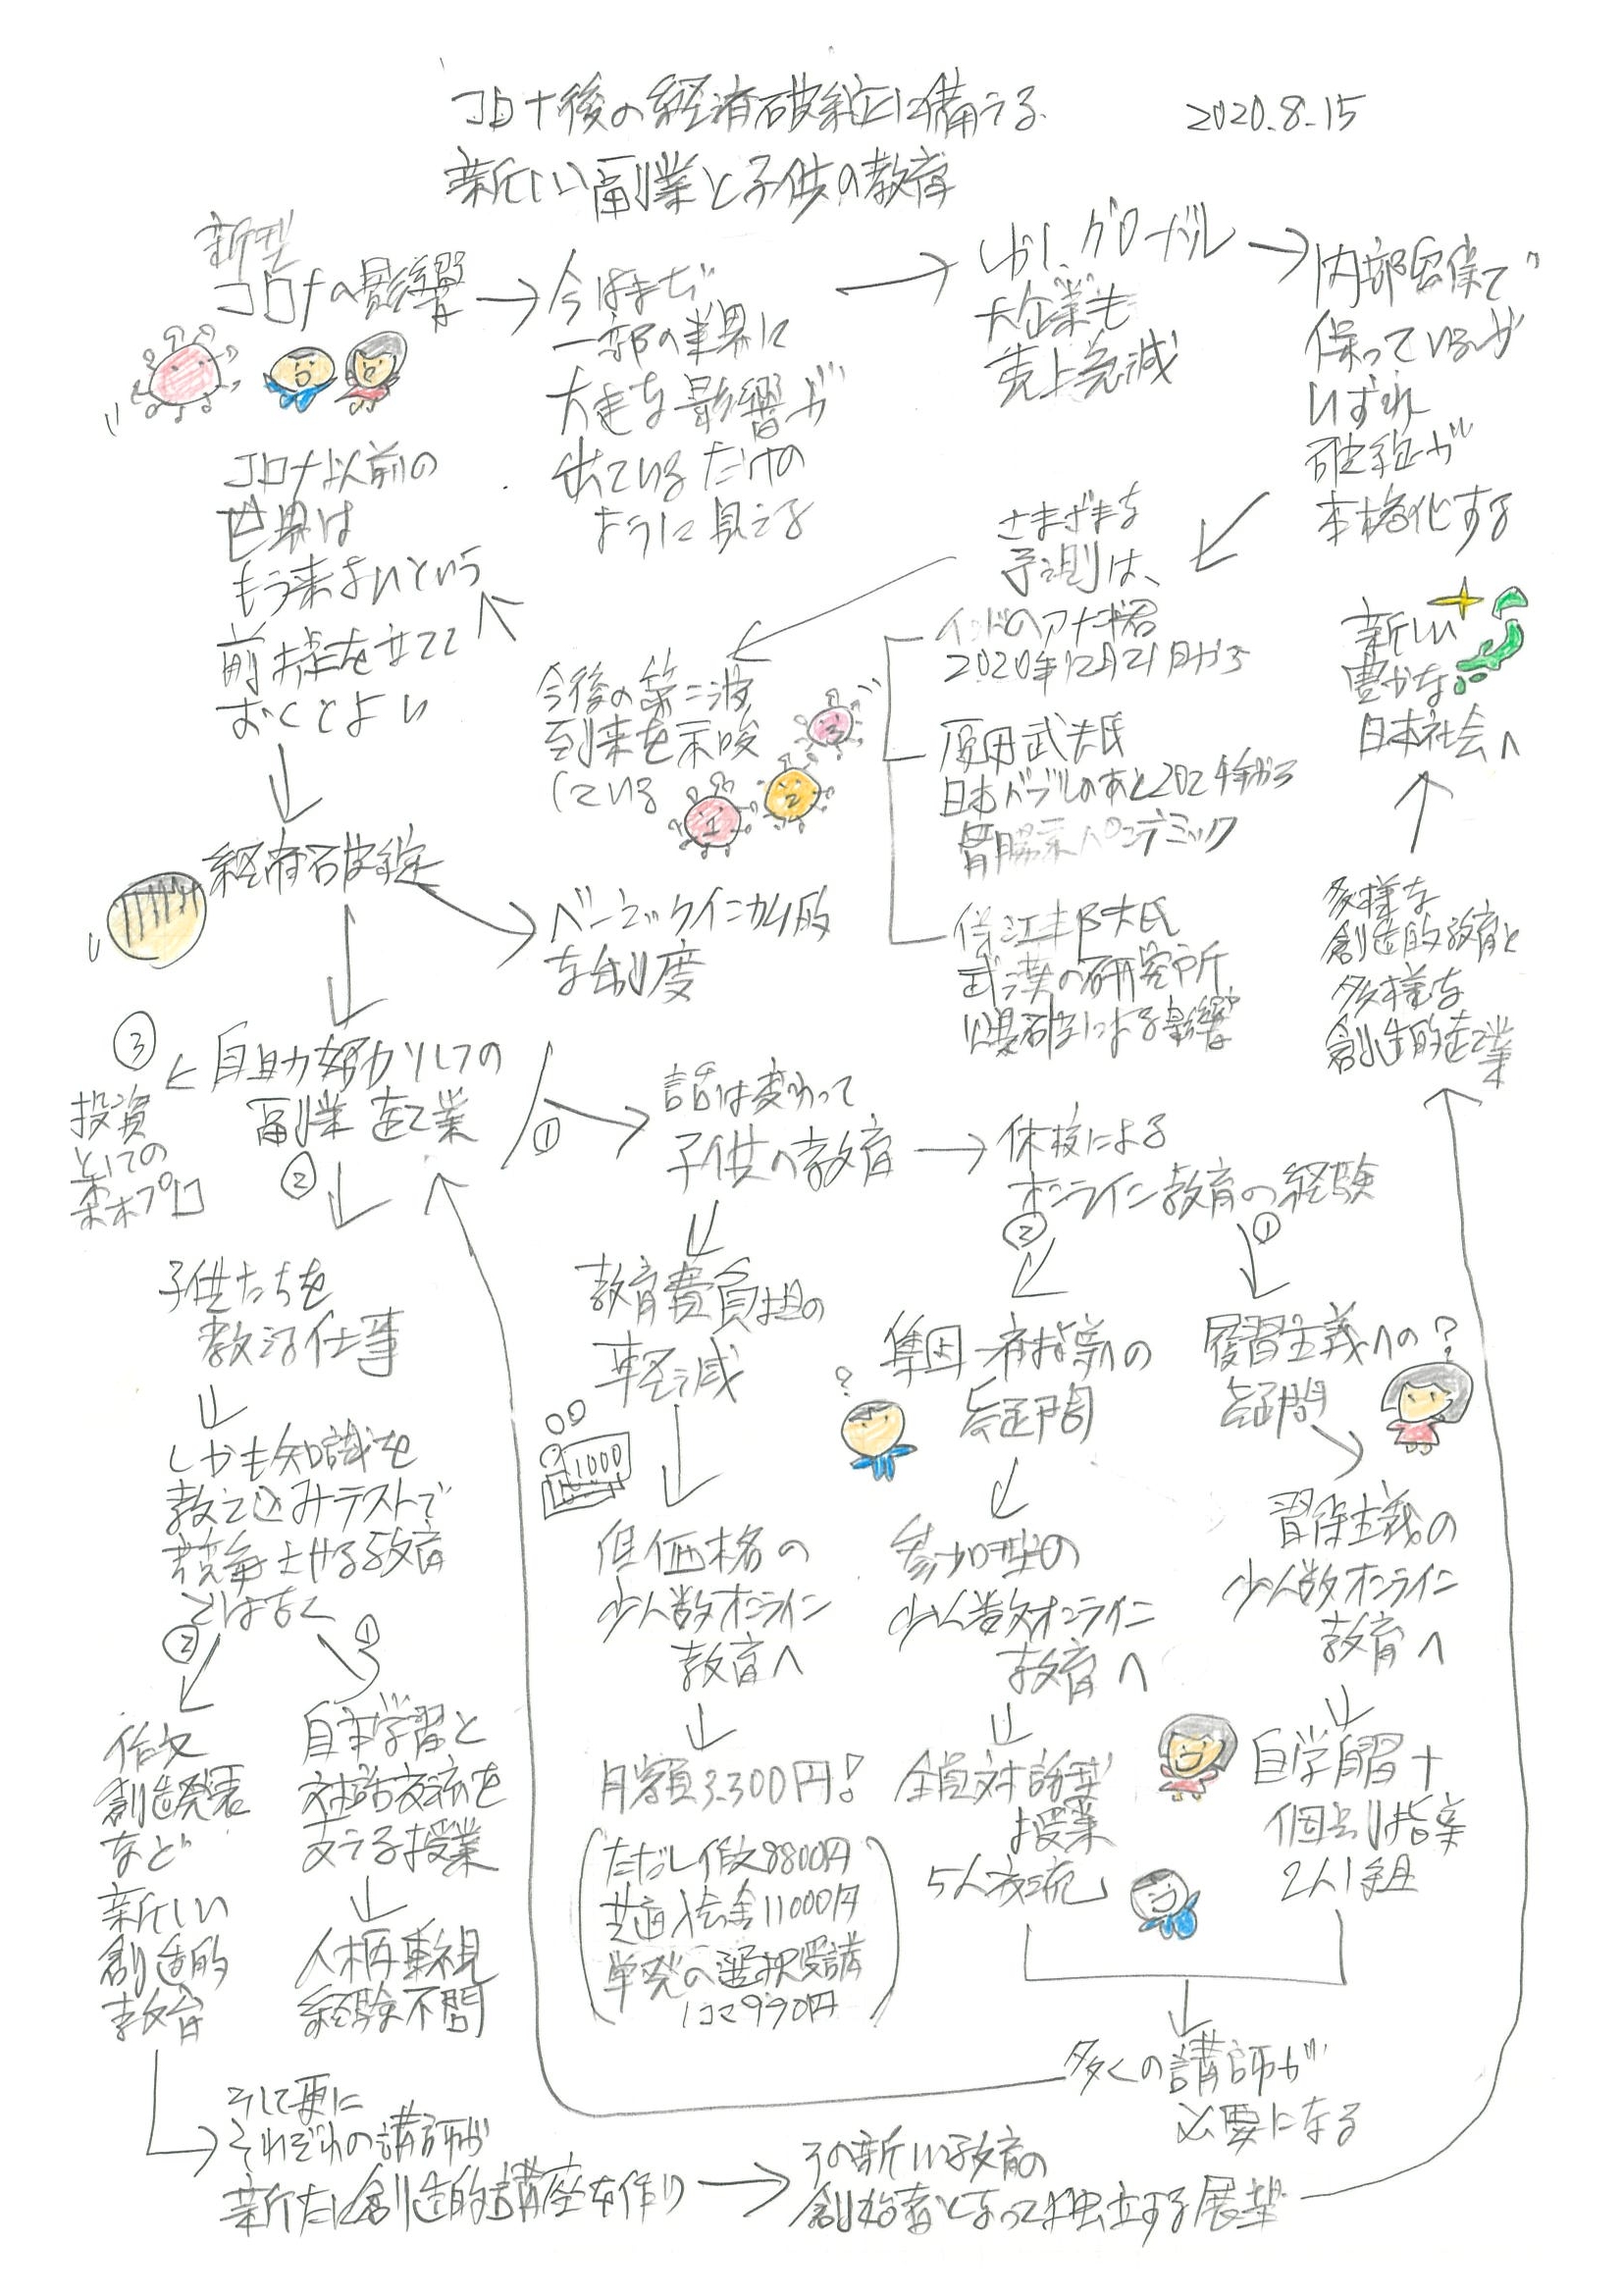 コロナ後の経済破綻に備える
新しい副業と子供の教育
2020.8.15
新型
コロナの影響
今はまだ
一部の業界に
大きな影響が
出ているだけの
ように見える
しかし、グローバル
大企業も
売上急減
内部留保で
保っているが
いずれ
破綻が
本格化する
さまざまな
予測は、
インドのアナンド君
2020年12月21日から
原田武夫氏
日本バブルのあと2024年から
胃腸系パンデミック
武漢の研究所
爆破による影響
今後の第二波
到来を示唆
している
1
2
3
コロナ以前の
世界は
もう来ないという
前提を立てて
おくとよい
経済破綻
ベーシックインカム的
な制度
自助努力としての
副業 在宅業
③
投資
としての
②
子供たちを
教える仕事
しかも知識を
教え込みテストで
競争させる教育
ではなく
②
作文
創造発表
など
新しい
創造的
教育
①
自主学習と
対話交流を
支える授業
人柄重視
経験不問
そして更に
それぞれの講師が
新たに創造的講座を作り
その新しい教育の
創始者となって独立する展望
①
話は変わって
子供の教育
教育費負担の
軽減
1000
低価格の
少人数オンライン
教育へ
月額3,300円!
(ただし作文8800円
共通入会金11000円
単発の選択受講
1コマ990円)
休校による
オンライン教育の経験
②
集団一斉指導への
疑問
?
参加型の
少人数オンライン
教育へ
全員対話型
授業
5人交流
①
履習主義への?
疑問
習得主義の
少人数オンライン
教育へ
自学自習+
個別指導
2人1組
多くの講師が
必要になる
多様な
創造的教育と
多様な
創造的在宅業
新しい
豊かな
日本社会へ